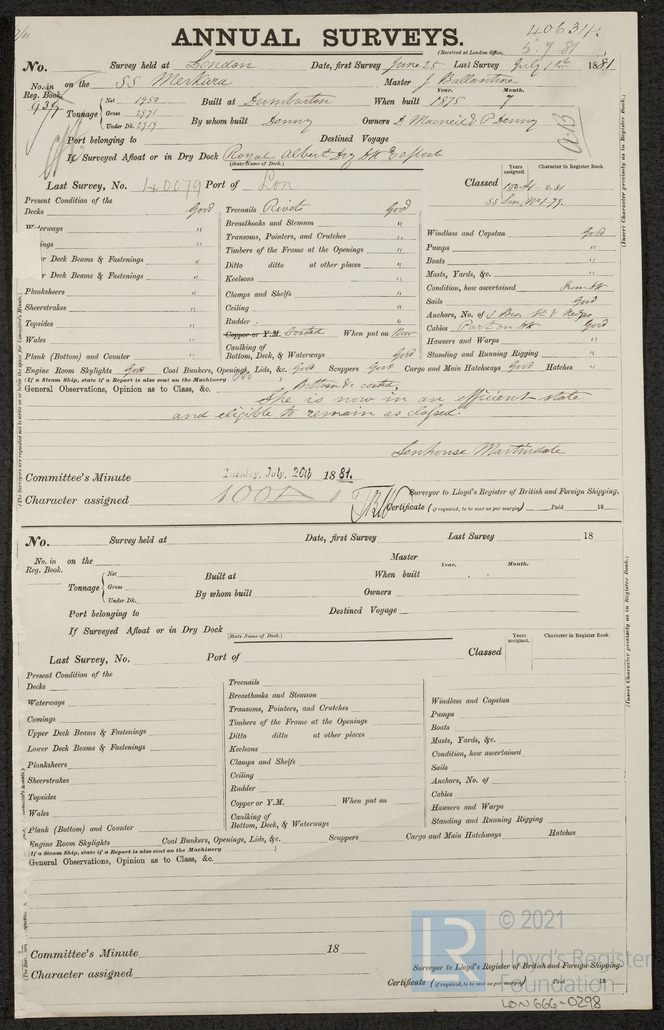 40634
ANNUAL SURVEYS.
(Received at London Office, 5.7.81
No. Survey held at London Date, first Survey June 25 Last Survey July 1st 1881
No. in Reg. Book. on the SS Merkara Master J Ballantine
939 Tonnage Net 1950 Built at Dumbarton When built Year. 1875 Month. 7
Gross 2971 By whom built Denny Owners D Macneil & P Denny
Under Dk. 2919
Port belonging to Destined Voyage
If Surveyed Afloat or in Dry Dock Royal Albert Dry Dk & afloat
(State Name of Dock.)
Last Survey, No. 40079 Port of Lon Classed Years assigned. Character in Register Book.
100 A1
SS Lon, No1-79
(Insert Character precisely as in Register Book.)
Present Condition of the
Decks Good
Waterways "
ings "
r Deck Beams & Fastenings "
r Deck Beams & Fastenings "
Planksheers "
Sheerstrakes "
Topsides "
Wales "
Plank (Bottom) and Counter "
Treenails Rivets Good
Breasthooks and Stemson "
Transoms, Pointers, and Crutches "
Timbers of the Frame at the Openings "
Ditto ditto at other places "
Keelsons "
Clamps and Shelfs "
Ceiling "
Rudder "
Copper or Y.M. Coated When put on Now
Caulking of
Bottom, Deck, & Waterways Good
Windlass and Capstan Good
Pumps "
Boats "
Masts, Yards, &c. "
Condition, how ascertained from dk
Sails Good
Anchors, No. of 3 Bow. St & Kedges
Cables Part on dk Good
Hawsers and Warps "
Standing and Running Rigging "
Engine Room Skylights Good Coal Bunkers, Openings, Lids, &c. Good Scuppers Good Cargo and Main Hatchways Good Hatches "
(If a Steam Ship, state if a Report is also sent on the Machinery
General Observations, Opinion as to Class, &c. Bottom &c coated.
She is now in an efficient state
and eligible to remain as classed.
Senhouse Martindale
Committee's Minute Tuesday, July, 26th 1881.
Surveyor to Lloyd's Register of British and Foreign Shipping.
Character assigned 100A
Certificate (if required, to be sent as per margin) Paid 18
No. Survey held at Date, first Survey Last Survey 18
No. in Reg. Book. on the Master
Tonnage Net Built at When built Year. Month.
Gross By whom built Owners
Under Dk.
Port belonging to Destined Voyage
If Surveyed Afloat or in Dry Dock
(State Name of Dock.)
Last Survey, No. Port of Classed Years assigned. Character in Register Book.
(Insert Character precisely as in Register Book.)
Present Condition of the
Decks
Waterways
Comings
Upper Deck Beams & Fastenings
Lower Deck Beams & Fastenings
Planksheers
Sheerstrakes
Topsides
Wales
Plank (Bottom) and Counter
Treenails
Breasthooks and Stemson
Transoms, Pointers, and Crutches
Timbers of the Frame at the Openings
Ditto ditto at other places
Keelsons
Clamps and Shelfs
Ceiling
Rudder
Copper or Y.M. When put on
Caulking of
Bottom, Deck, & Waterways
Windlass and Capstan
Pumps
Boats
Masts, Yards, &c.
Condition, how ascertained
Sails
Anchors, No. of
Cables
Hawsers and Warps
Standing and Running Rigging
Engine Room Skylights Coal Bunkers, Openings, Lids, &c. Scuppers Cargo and Main Hatchways Hatches
(If a Steam Ship, state if a Report is also sent on the Machinery )
General Observations, Opinion as to Class, &c.
Committee's Minute 18
Surveyor to Lloyd's Register of British and Foreign Shipping.
Character assigned
Certificate (if required, to be sent as per margin) Paid 18
LR © 2021
Lloyd's Register
Foundation
LON 666-0298